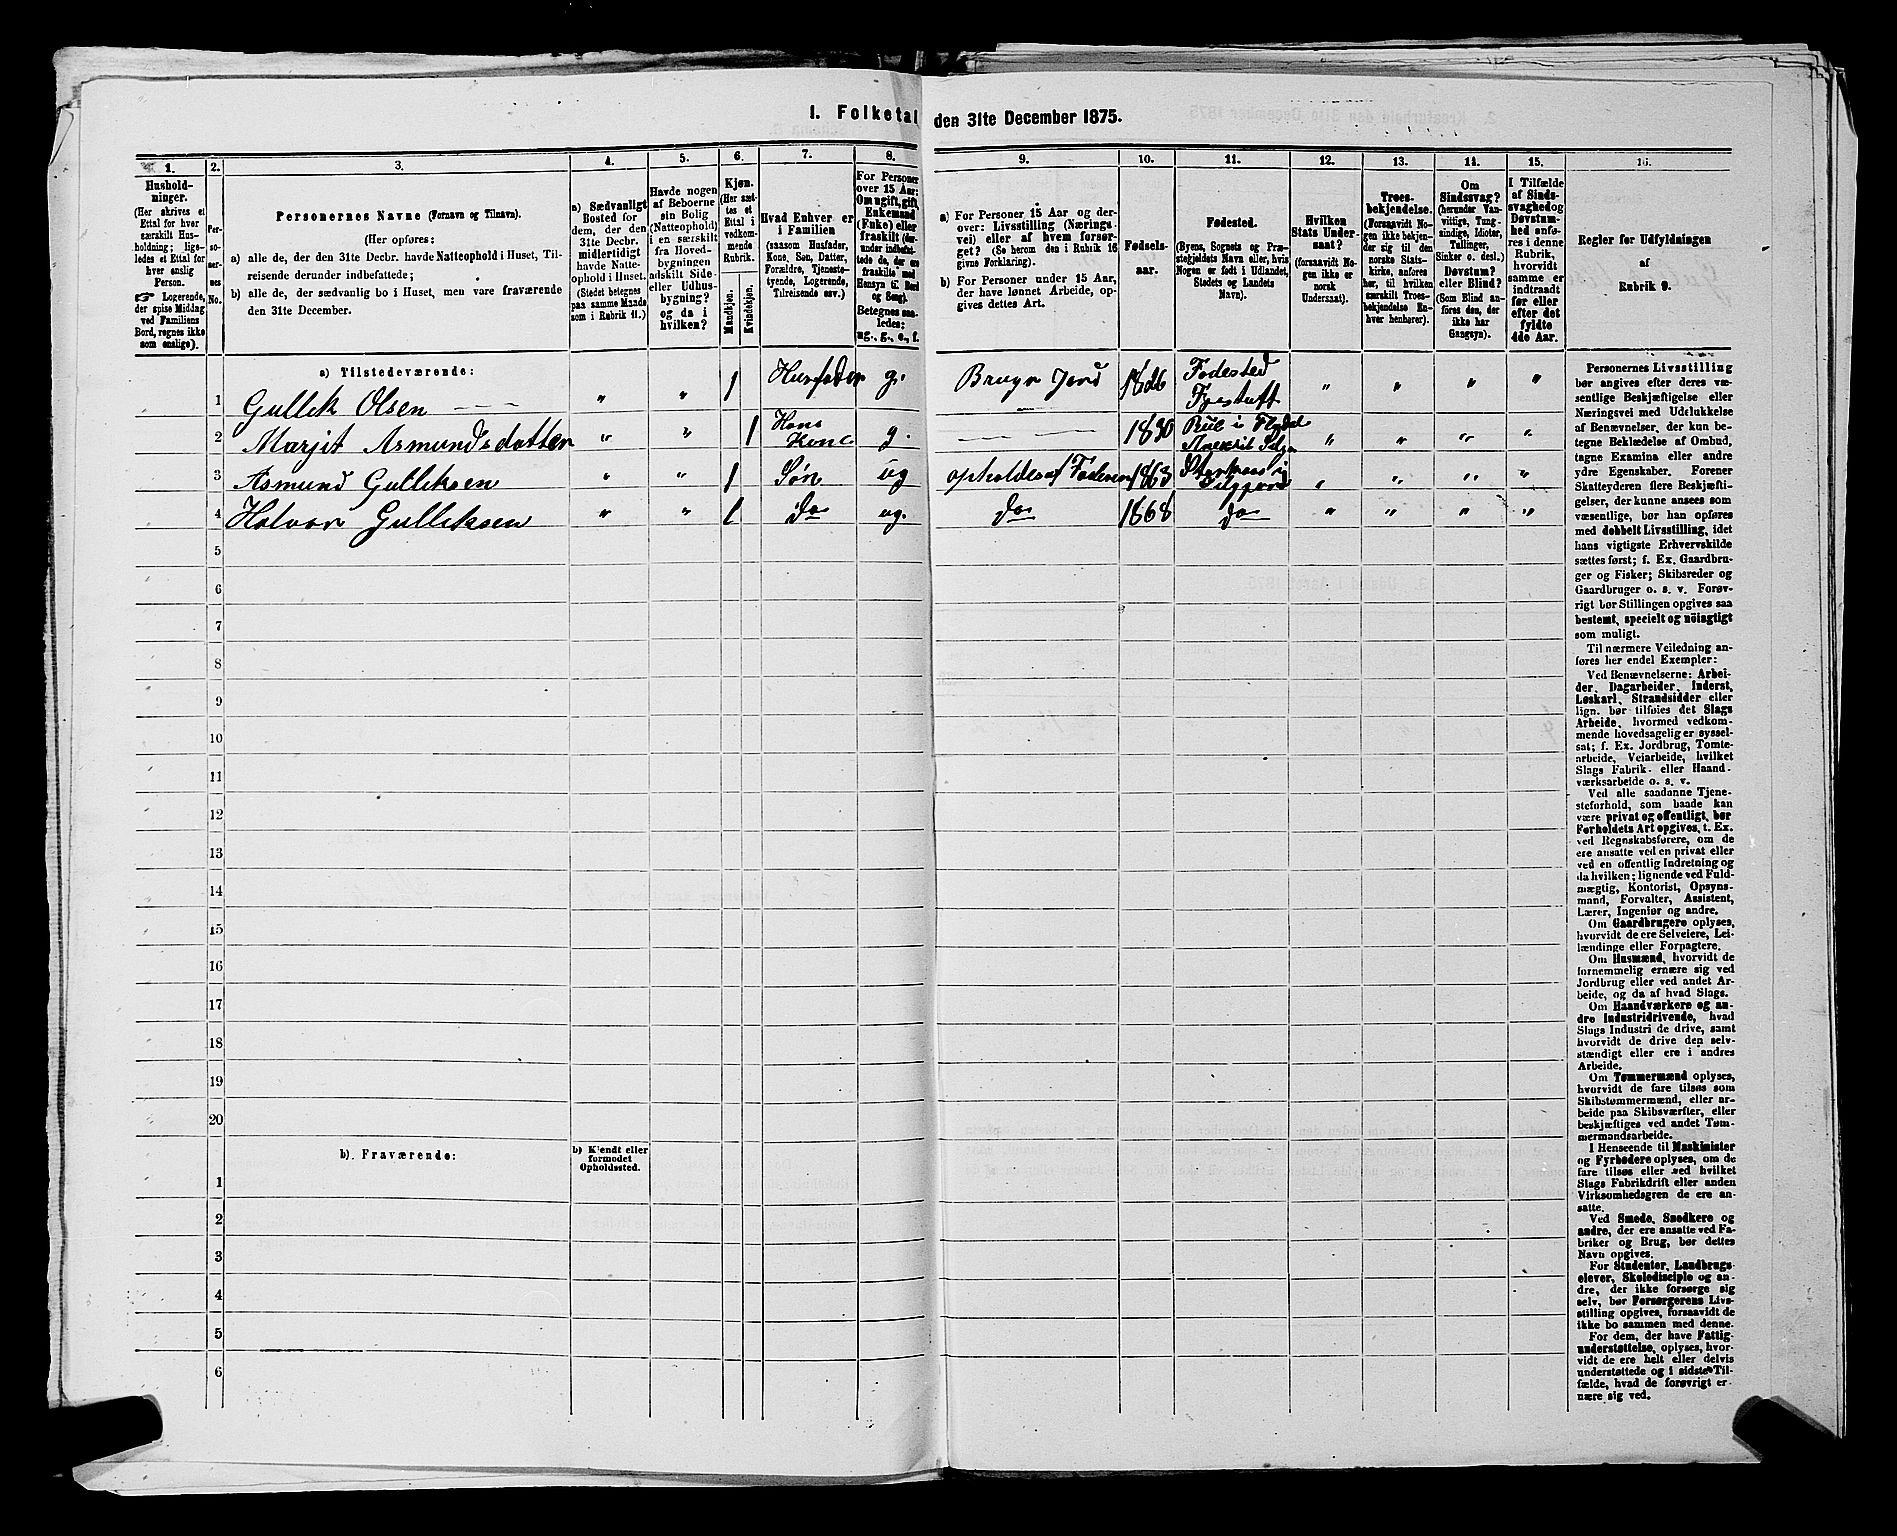 1. Folketal den 31te December 1875.
1. 2. 3. 4. 5. 6. 7. 8. 9. 10. 11. 12. 13. 14. 15. 16.
Hushold-
ninger.
(Her skrives et
Ettal for hver
særskilt Hus-
holdning; lige-
ledes et Ettal for
hver enslig
Person.
☞ Logerende,
der spise Middag
ved Familiens
Bord, regnes ikke
som enslige).
Per-
so-
ner-
nes
No.
Personernes Navne (Fornavn og Tilnavn).
(Her opføres:
a) alle de, der den 31te Decbr. havde Natteophold i Huset, Til-
reisende derunder indbefattede;
b) alle de, der sædvanlig bo i Huset, men vare fraværende
den 31te December.
a) Sædvanligt
Bosted for
dem, der den
31te Decbr.
midlertidigt
havde Natte-
ophold i Huset.
(Stedet betegnes
paa samme Maade
som i Rubrik 11.)
Havde nogen
af Beboerne
sin Bolig
(Natteophold)
i en særskilt
fra Hoved-
bygningen
adskilt Side-
eller Udhus-
bygning?
og da i
hvilken?
Kjøn.
(Her sæt-
tes et
Ettal i
vedkom-
mende
Rubrik.
Mandkjøn.
Kvindekjøn.
Hvad Enhver er
i Familien
(saasom Husfader,
Kone, Søn, Datter,
Forældre, Tjeneste-
tyende, Logerende,
Tilreisende osv.)
For Personer
over 15 Aar:
Om ugift, gift,
Enkemand
(Enke) eller
fraskilt (der-
under indbefat-
tede de, der ere
fraskilte med
Hensyn til Bord
og Seng).
Betegnes saa-
ledes:
ug., g., e., f.
a) For Personer 15 Aar og der-
over: Livsstilling (Nærings-
vei) eller af hvem forsør-
get? (Se herom den i Rubrik 16
givne Forklaring).
b) For Personer under 15 Aar,
der have lønnet Arbeide, op-
gives dettes Art.
Fødsels-
aar.
Fødested.
(Byens, Sognets og Præ-
stegjeldets Navn eller, hvis
Nogen er født i Udlandet,
Stedets og Landets
Navn).
Hvilken
Stats Under-
saat?
(forsaavidt No-
gen ikke er
norsk
Undersaat).
Troes-
bekjendelse.
(Forsaavidt No-
gen ikke bekjen-
der sig til den
norske Stats-
kirke, anføres
her, til hvilken
særskilt Troes-
bekjendelse En-
hver henhører).
Om
Sindssvag?
(herunder Van-
vittige, Tung-
sindige, Idioter,
Tullinger,
Sinker o. desl.)
Døvstum?
eller Blind?
(Som Blind an-
føres den, der
ikke har
Gangsyn).
I Tilfælde
af Sinds-
svaghed og
Døvstum-
hed anfø-
res i denne
Rubrik,
hvorvidt
samme er
indtraadt
før eller
efter det
fyldte
4de Aar.
Regler for Udfyldningen
af
Rubrik 9.
a) Tilstedeværende:
1 Gullek Olsen " " 1 Husfader g. 1826 Fødested " " " "
2 Marjit Asmundsdatter " " 1 Hans Kone g. 1830 " " " "
3 Asmund Gulleksen " " 1 Søn ug 1863 " " " "
4 Halvor Gulleksen " " 1 do ug. do 1868 do " " " "
5
6
7
8
9
10
11
12
13
14
15
16
17
18
19
20
b). Fraværende:
b) Kjendt eller
formodet
Opholdssted.
1
2
3
4
5
6
Personernes Livsstilling
bør angives efter deres væ-
sentlige Beskjæftigelse eller
Næringsvei med Udelukkelse
af Benævnelser, der kun be-
tegne Beklædelse af Ombud,
tagne Examina eller andre
ydre Egenskaber. Forener
Skatteyderen flere Beskjæfti-
gelser, der kunne ansees som
væsentlige, bør han opføres
med dobbelt Livsstilling, idet
hans vigtigste Erhvervskilde
sættes først; f. Ex. Gaardbru-
ger og Fisker; Skibsreder og
Gaardbruger o. s. v. Forøv-
rigt bør Stillingen opgives saa
bestemt, specielt og nöiagtigt
som muligt.
Til nærmere Veiledning an-
føres her endel Exempler:
Ved Benævnelserne: Arbei-
der, Dagarbeider, Inderst,
Løskarl, Strandsidder eller
lign. bør tilføies det Slags
Arbeide, hvormed vedkom-
mende hovedsagelig er syssel-
sat; f. Ex. Jordbrug, Tomte-
arbeide, Veiarbeide, hvilket
Slags Fabrik- eller Haand-
værksarbeide o. s. v.
Ved alle saadanne Tjene-
steforhold, som baade kan
være privat og offentligt, bør
Forholdets Art opgives, t. Ex.
ved Regnskabsførere, om de
ere ansatte ved en privat eller
ved en offentlig Indretning og
da hvilken; lignende ved Fuld-
mægtig, Kontorist, Opsyns-
mand, Forvalter, Assistent,
Lærer, Ingeniør og andre.
Om Gaardbrugere oplyses,
hvorvidt de ere Selveiere, Lei-
lændinge eller Forpagtere.
Om Husmænd, hvorvidt de
fornemmelig ernære sig ved
Jordbrug eller ved andet Ar-
beide, og da af hvad Slags.
Om Haandværkere og an-
dre Industridrivende, hvad
Slags Industri de drive, samt
hvorvidt de drive den selv-
stændigt eller ere i andres
Arbeide.
Om Tømmermænd oplyses,
hvorvidt de fare tilsøs som
Skibstømmermænd, eller ar-
beide paa Skibsværfter, eller
beskjæftiges ved andet Tøm-
mermandsarbeide.
I Henseende til Maskinister
og Fyrbødere oplyses, om de
fare tilsøs eller ved hvilket
Slags Fabrikdrift eller anden
Virksomhedsgren de ere an-
satte.
Ved Smede, Snedkere og
andre, der ere ansatte ved Fa-
briker og Brug, bør dettes
Navn opgives.
For Studenter, Landbrugs-
elever, Skoledisciple og an-
dre, der ikke forsørge sig
selv, bør Forsørgerens Livs-
stilling opgives, forsaavidt de
ikke bo sammen med denne.
For dem, der have Fattig-
understøttelse, oplyses, hvor-
vidt de ere helt eller delvis
understøttede og i sidste Til-
fælde, hvad de forøvrigt er-
nære sig ved.